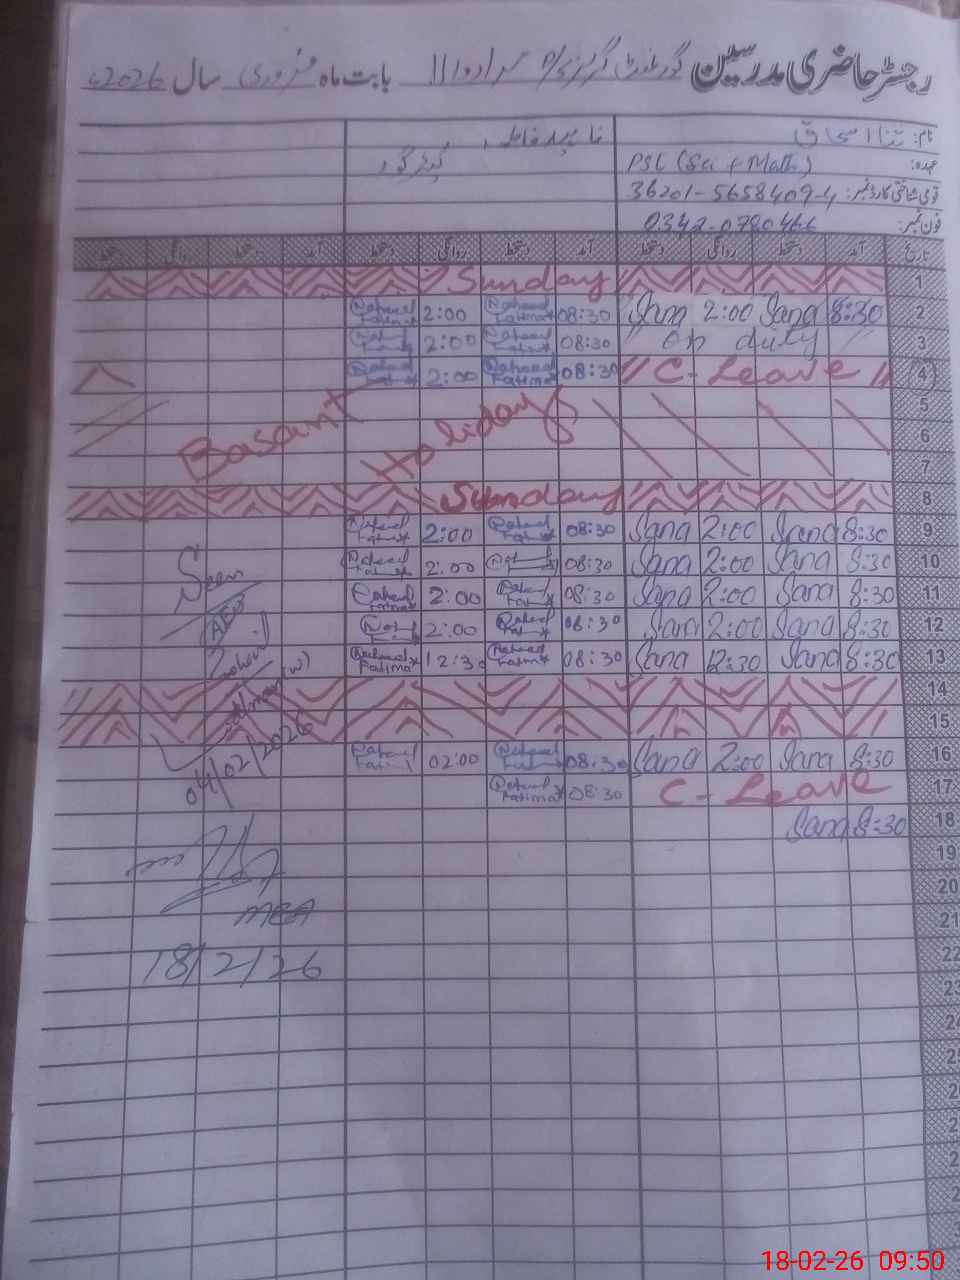 رجسٹر حاضری مدرسین گورنمنٹ گرلز بابت ماہ فروری سال 2026ء
نام: ثناء اسحاق ناہید فاطمہ
عہدہ: PSC (Sci + Math)
قومی شناختی کارڈ نمبر: 36201-5658409-4
فون نمبر: 0342-0780466
تاریخ آمد دستخط روانگی دستخط آمد دستخط روانگی دستخط آمد دستخط روانگی دستخط
1 Sunday
2 8:30 Sana 2:00 Sana 08:30 Naheed Fatima 2:00 Naheed Fatima
3 " on duty " 08:30 Naheed Fatima 2:00 Naheed Fatima
4 " C-Leave " 08:30 Naheed Fatima 2:00 Naheed Fatima
5
6 Basant Holidays
7
8 Sunday
9 8:30 Sana 2:00 Sana 08:30 Naheed Fatima 2:00 Naheed Fatima
10 8:30 Sana 2:00 Sana 08:30 2:00 Naheed Fatima
11 8:30 Sana 2:00 Sana 08:30 Naheed Fatima 2:00 Naheed Fatima
12 8:30 Sana 2:00 Sana 08:30 Naheed Fatima 2:00
13 8:30 Sana 12:30 Sana 08:30 Naheed Fatima 12:30 Naheed Fatima
14
15
16 8:30 Sana 2:00 Sana 08:30 Naheed Fatima 02:00 Naheed Fatima
17 C-Leave 08:30 Naheed Fatima
18 8:30 Sana
19
20
21
22
23
Seen
AEO
(W)
04/02/2026
MEA
18/2/26
18-02-26 09:50